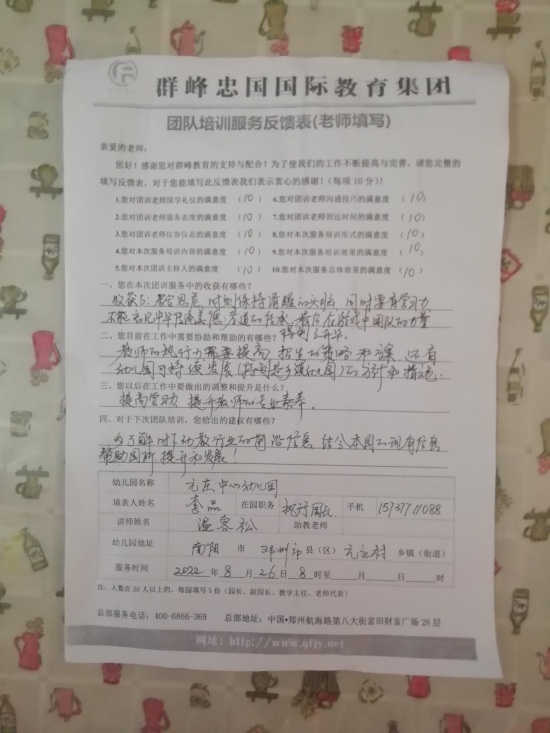 群峰忠国国际教育集团
团队培训服务反馈表(老师填写)
亲爱的老师:
您好!感谢您对群峰教育的支持与配合!为了使我们的工作不断提高与完善,请您完整的
填写反馈表,对于您能填写此反馈表我们表示衷心的感谢!(每项10分)!
1.您对团训老师国学礼仪的满意度 (10) 6.您对团训老师沟通技巧的满意度 (10)
2.您对团训老师服务态度的满意度 (10) 7.您对团训老师到达时间的满意度 (10)
3.您对团训老师仪容仪态的满意度 (10) 8.您对本次服务培训形式的满意度 (10)
4.您对本次服务培训内容的满意度 (10) 9.您对本次服务培训效果的满意度 (10)
5.您对本次团训主持人的满意度 (10) 10.您对本次服务总体效果的满意度 (10)
一、您在本次团训服务中的收获有哪些?
收获了:居安思危,时刻保持清醒的头脑,同时要有学习力
不能忘记中华传统美德,孝道的传承,最后在游戏中团队的力量
得到了升华。
二、您目前在工作中需要协助和帮助的有哪些?
教师的执行力需要提高,招生的策略和课,还有
幼儿园可持续发展(特别是乡镇幼儿园)的会计和措施。
三、您以后在工作中要做出的调整和提升是什么?
提高学习力,提升教师的专业素养。
四、对于下次团队培训,您给出的建议有哪些?
多了解时下幼教行业的前沿信息,结合本园的现有信息
帮助园所提升和发展!
幼儿园名称 元庄中心幼儿园
填表人姓名 李品 在园职务 执行园长 手机
讲师姓名 温容松 助教老师
幼儿园地址 南阳 市 邓州市 县(区) 元庄村 乡镇(街道)
服务时间 2022 年 8 月 26 日 8 时至 月 日 时
注:人数在20人以上的,每园填写5份(园长、副园长、教学主任、老师代表)
总部服务电话:400-6866-369 总部地址:中国•郑州航海路第八大街富田财富广场28层
网址:http://www.qfjy.net